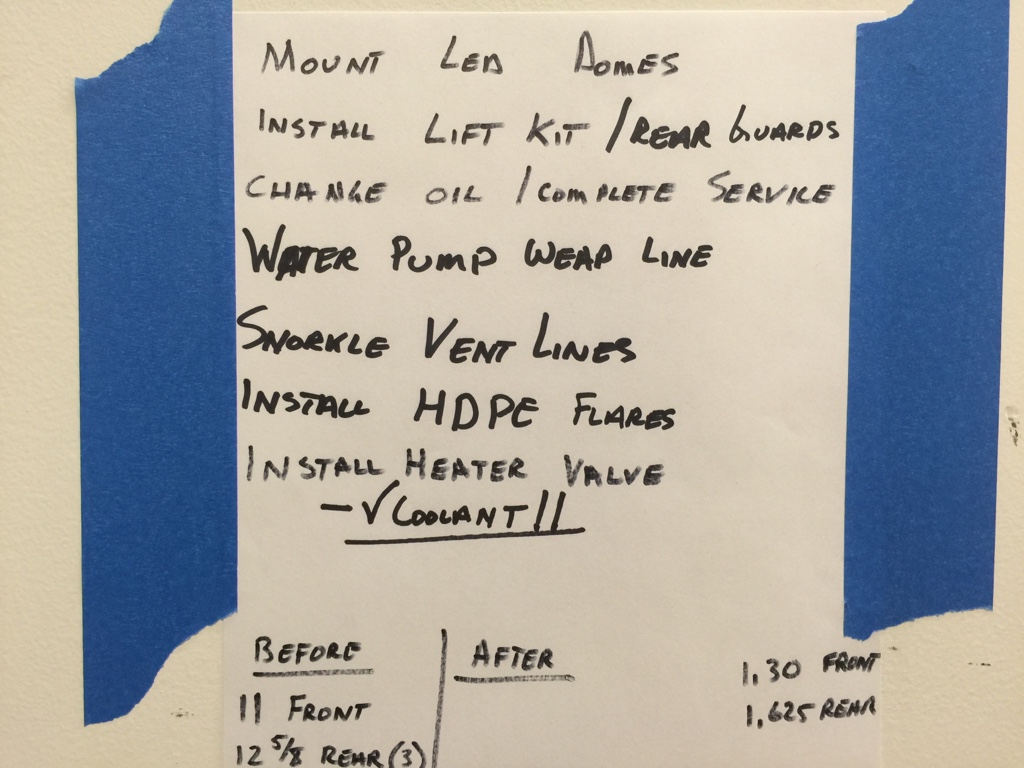 MOUNT LED DOMES
INSTALL LIFT KIT / REAR GUARDS
CHANGE OIL / COMPLETE SERVICE
WATER PUMP WEAP LINE
SNORKLE VENT LINES
INSTALL HDPE FLARES
INSTALL HEATER VALVE
- √ COOLANT !!
BEFORE
11 FRONT
12 5/8 REAR (3)
AFTER
1.30 FRONT
1.625 REAR